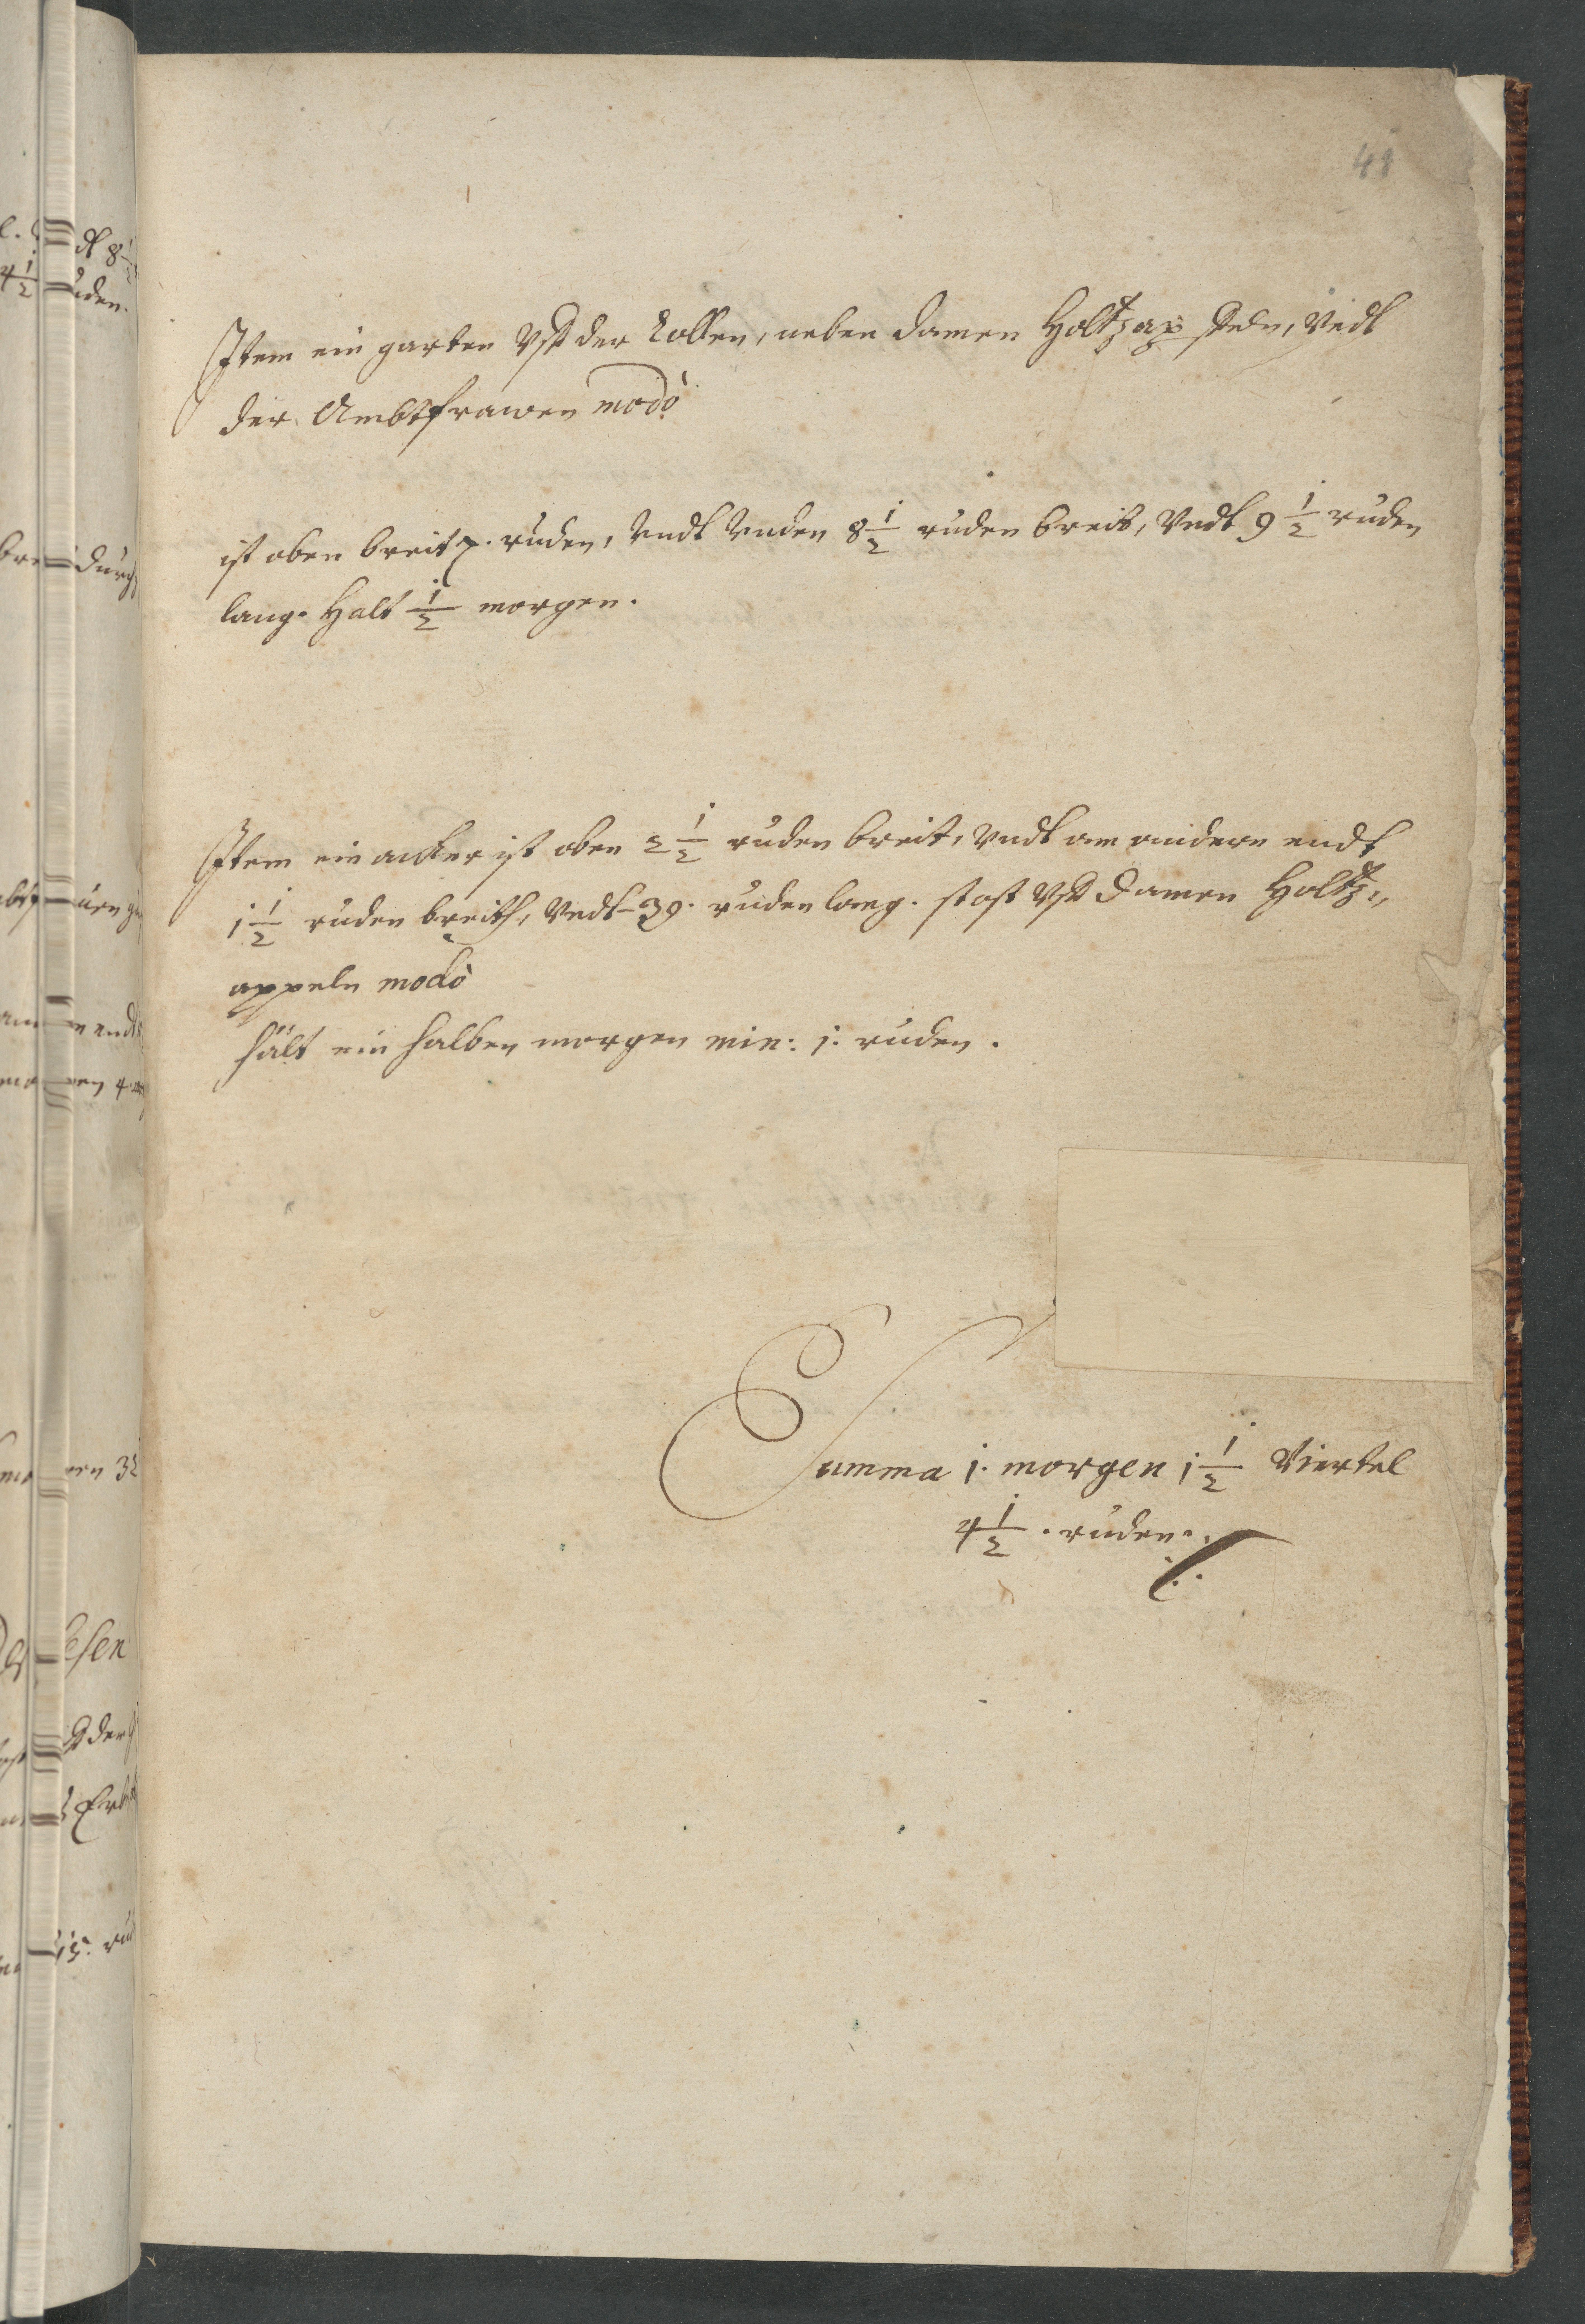 41
Item ein garten Vff der Collen, neben Damen Holtzapffeln, Vndt
der Ambtfrawen modò
ist oben breit 7. ruden, Vndt Vnden 8 1/2 ruden breit, Vndt 9 1/2 ruden
lang. Halt 1/2 morgen.
Item ein acker ist oben 2 1/2 ruden breit, Vndt am andern endt
1 1/2 ruden breith, Vndt 39. ruden lang. stost Vff Damen Holtz„
appeln modò
hält ein halben morgen min: 1. ruden.
Summa 1. morgen 1 1/2 Viertel
4 1/2. ruden.